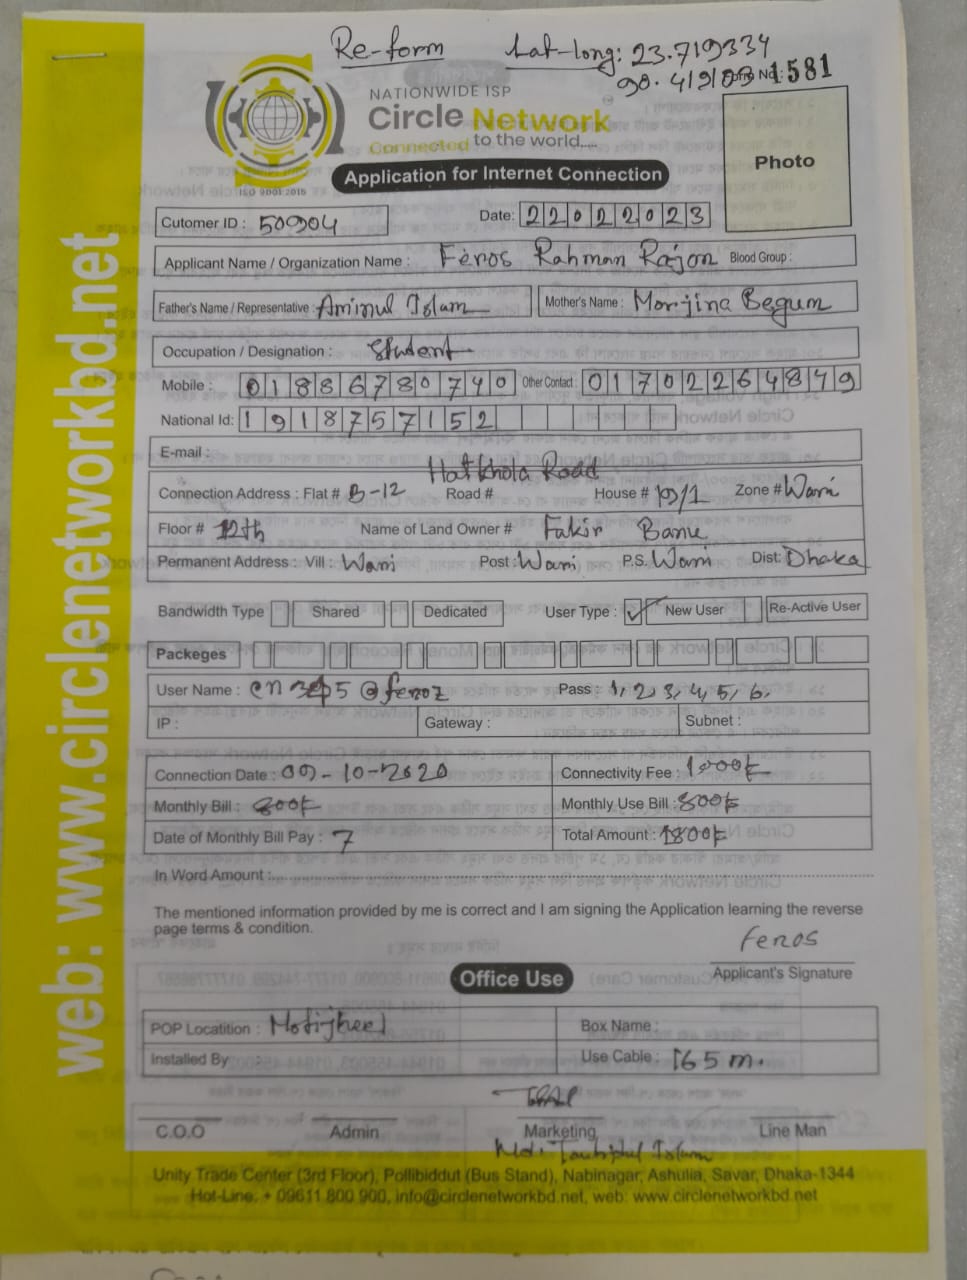 Re-form Lat-long: 23.719334
Form No: 1581
NATIONWIDE ISP
Circle Network
Connected to the world....
ISO 9001:2015
Application for Internet Connection
Photo
Cutomer ID : 50904 Date: 22022023
Applicant Name / Organization Name : Feros Rahman Rajon Blood Group :
Father's Name / Representative : Aminul Islam Mother's Name : Morjina Begum
Occupation / Designation : Student
Mobile : 01886780740 Other Contact : 01702264849
National Id: 1918757152
E-mail :
Hatkhola Road
Connection Address : Flat # B-12 Road # House # 19/1 Zone # Wari
Floor # 12th Name of Land Owner # Fakir Banu
Permanent Address : Vill : Wari Post : Wari P.S. Wari Dist: Dhaka
Bandwidth Type Shared Dedicated User Type : ✓ New User Re-Active User
Packeges
User Name : @feroz Pass : 1, 2, 3, 4, 5, 6.
IP : Gateway : Subnet :
Connection Date : 09-10-2020 Connectivity Fee : 1000৳
Monthly Bill : 800৳ Monthly Use Bill : 800৳
Date of Monthly Bill Pay : 7 Total Amount : 1800৳
In Word Amount :
The mentioned information provided by me is correct and I am signing the Application learning the reverse
page terms & condition.
Feros
Applicant's Signature
Office Use
POP Locatition : Motijheel Box Name :
Installed By : Use Cable : 165 m.
C.O.O Admin Marketing Line Man
Md. Islam
Unity Trade Center (3rd Floor), Pollibiddut (Bus Stand), Nabinagar, Ashulia, Savar, Dhaka-1344
Hot-Line: + 09611 800 900, info@circlenetworkbd.net, web: www.circlenetworkbd.net
web: www.circlenetworkbd.net